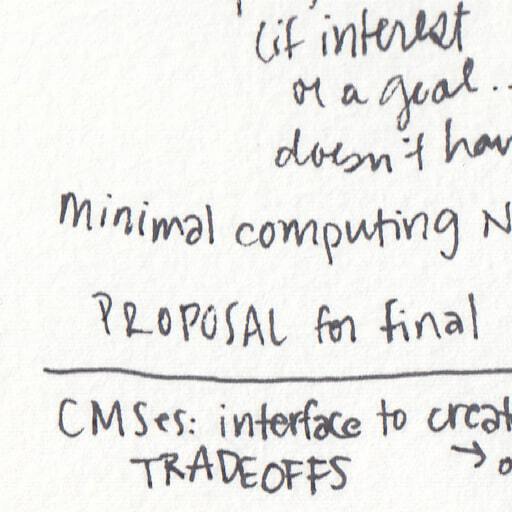 (if interest
or a goal..
doesn't hav
minimal computing N
PROPOSAL for final
CMSes: interface to creat
TRADEOFFS →